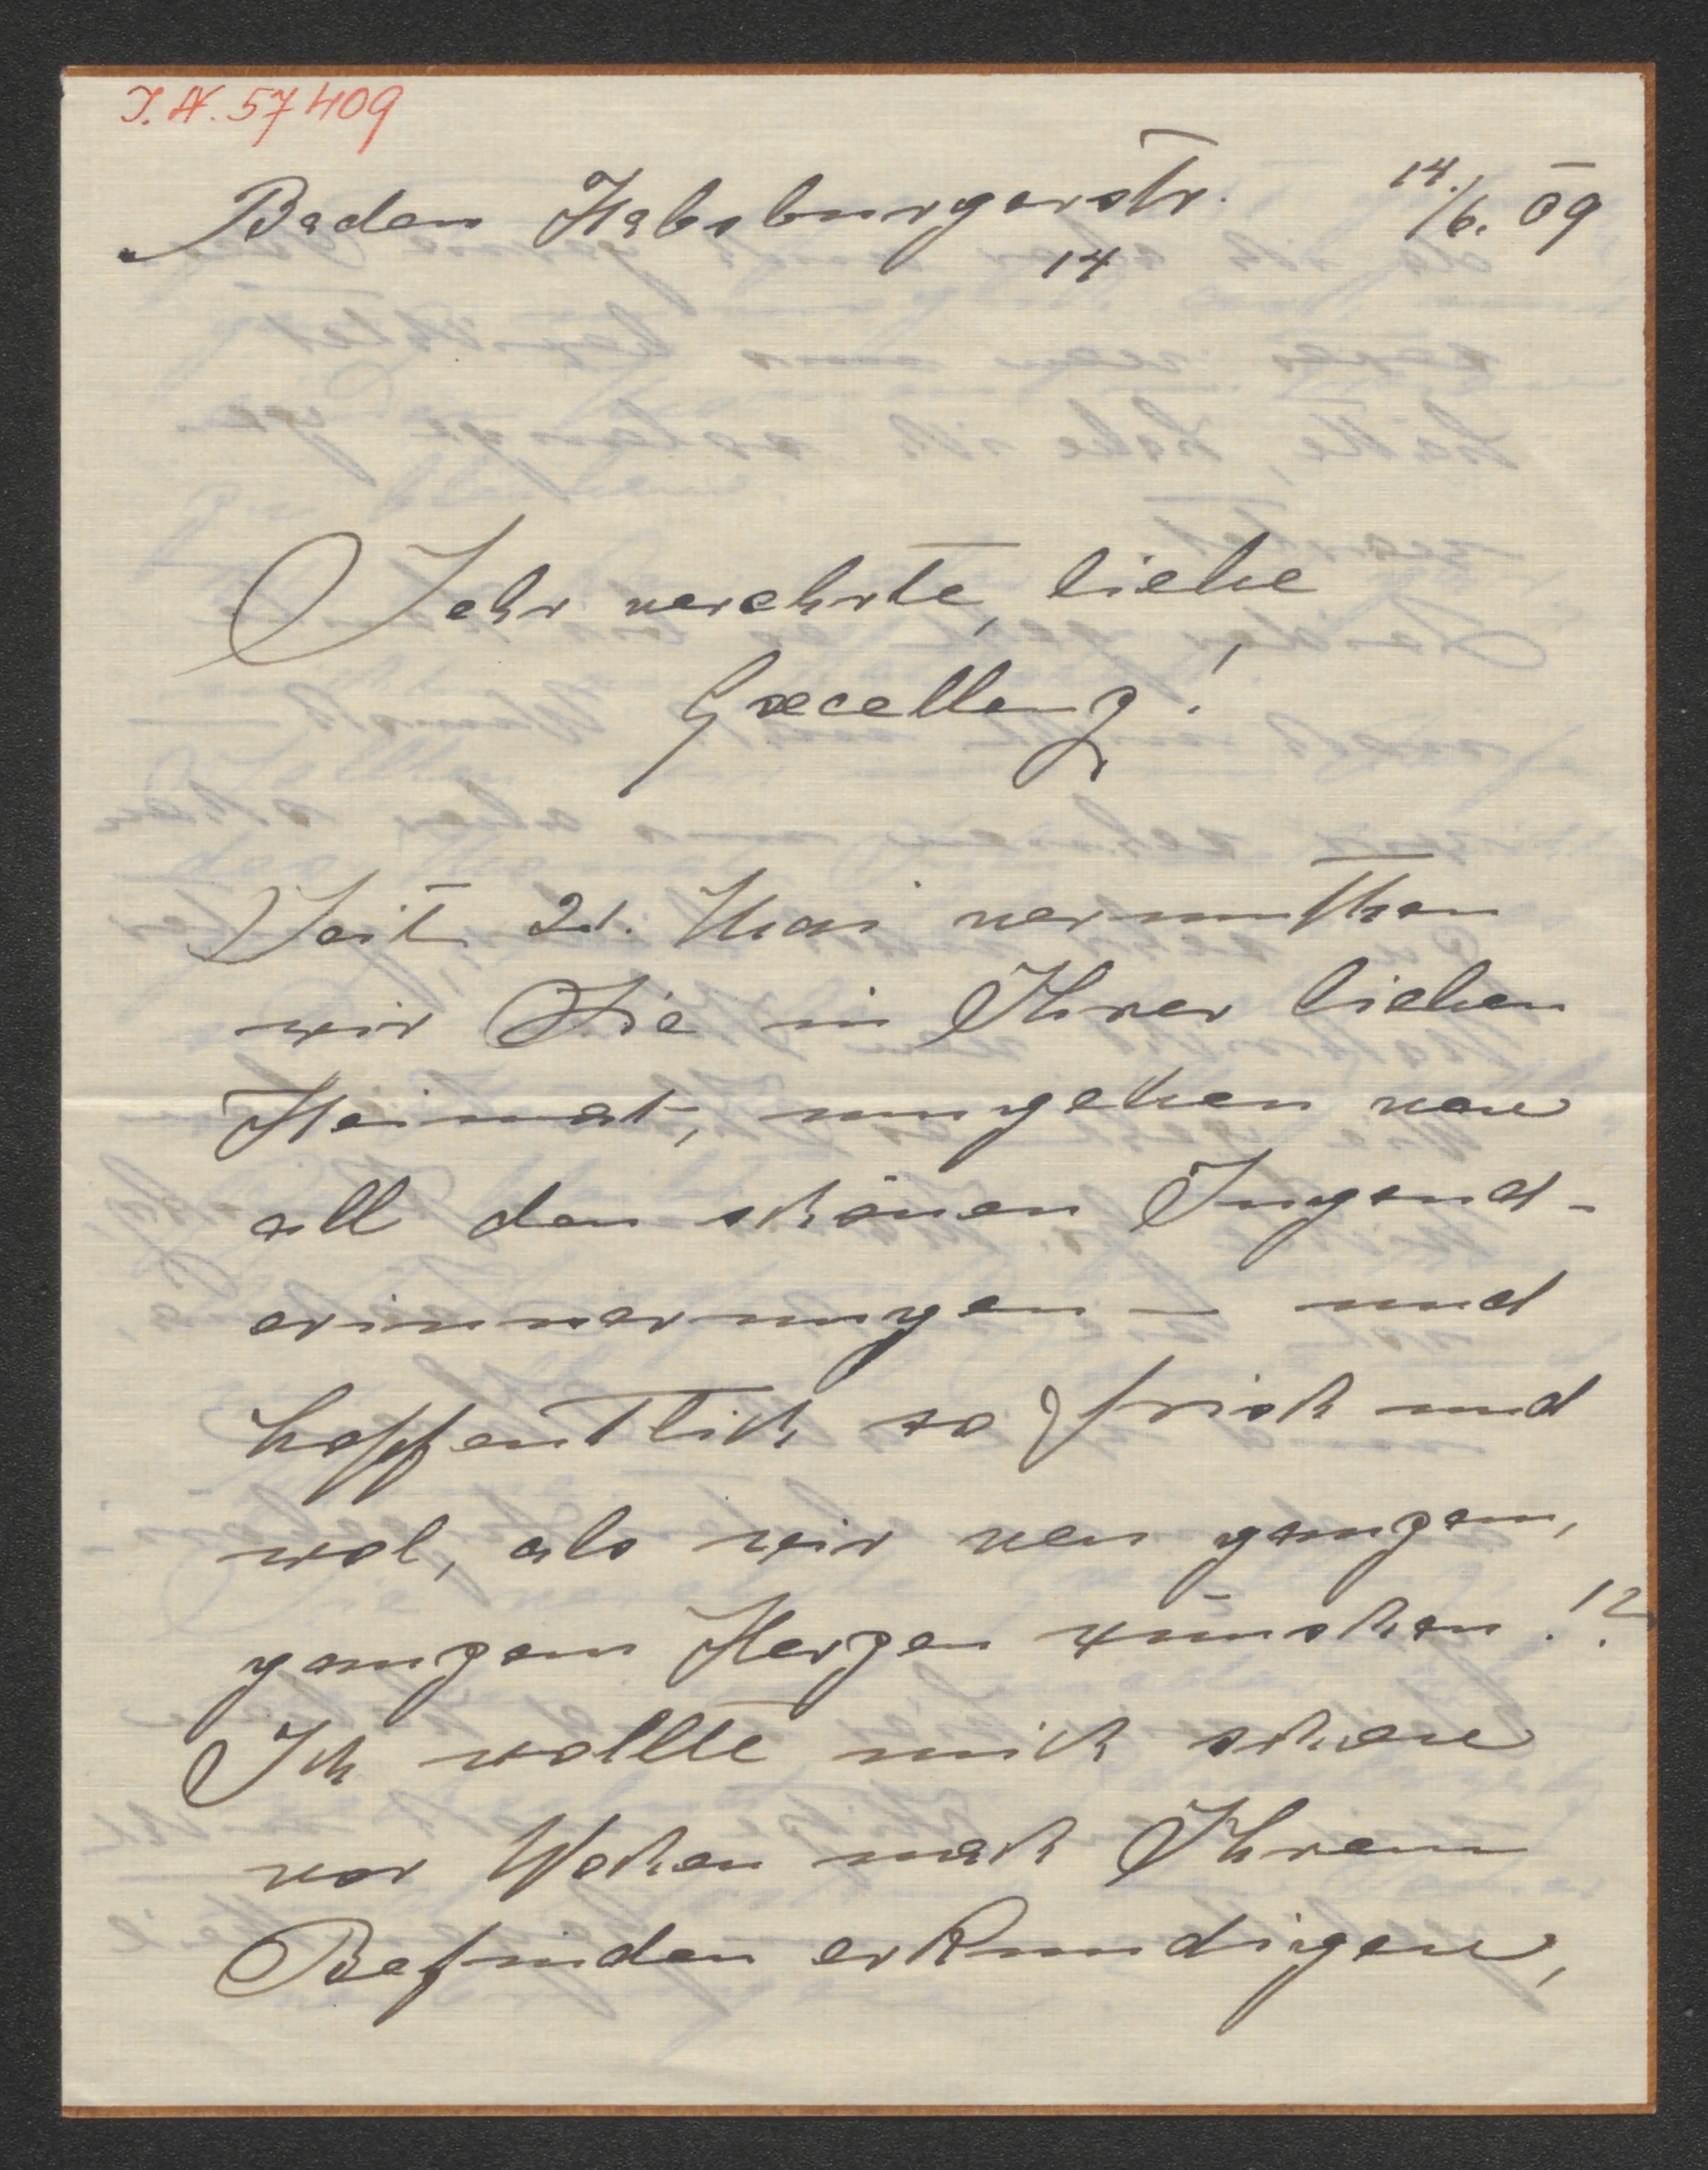 I.N. 57409
Baden Habsburgerstr. 14./6. 09
14
Sehr verehrte, liebe
Excellenz!
Seit 21. Mai vermuthen
wir Sie in Ihrer lieben
Heimat, umgeben von
all den schönen Jugend-
erinnerungen – und
hoffentlich so frisch und
wol, als wir von ganzem,
ganzem Herzen wünschen!?
Ich wollte mich schon
vor Wochen nach Ihrem
Befinden erkundigen,